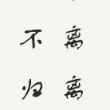 不离
归离